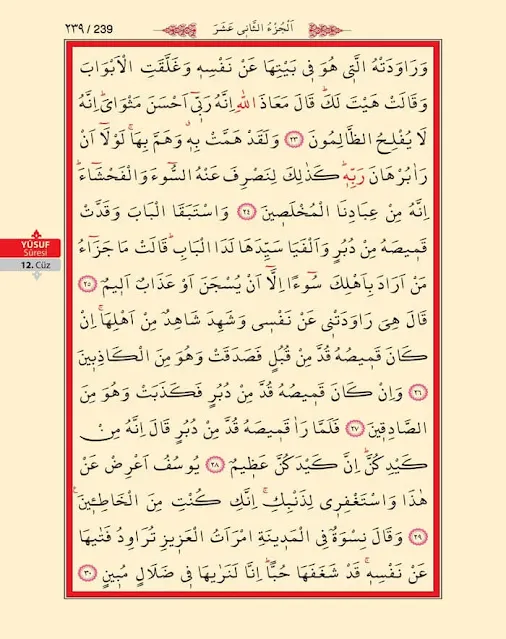 ٢٣٩ / 239
اَلْجُزْءُ الثَّانِي عَشَرَ
وَرَاوَدَتْهُ الَّتٖي هُوَ فٖي بَيْتِهَا عَنْ نَفْسِهٖ وَغَلَّقَتِ الْاَبْوَابَ
وَقَالَتْ هَيْتَ لَكَۜ قَالَ مَعَاذَ اللّٰهِ اِنَّهُ رَبّٖٓي اَحْسَنَ مَثْوَايَۜ اِنَّهُ
لَا يُفْلِحُ الظَّالِمُونَ ﴿٢٣﴾ وَلَقَدْ هَمَّتْ بِهٖۚ وَهَمَّ بِهَاۚ لَوْلَٓا اَنْ
رَاٰ بُرْهَانَ رَبِّهٖۜ كَذٰلِكَ لِنَصْرِفَ عَنْهُ السُّٓوءَ وَالْفَحْشَٓاءَۜ
اِنَّهُ مِنْ عِبَادِنَا الْمُخْلَصٖينَ ﴿٢٤﴾ وَاسْتَبَقَا الْبَابَ وَقَدَّتْ
قَمٖيصَهُ مِنْ دُبُرٍ وَاَلْفَيَا سَيِّدَهَا لَدَا الْبَابِۜ قَالَتْ مَا جَزَٓاءُ
مَنْ اَرَادَ بِاَهْلِكَ سُٓوءًا اِلَّٓا اَنْ يُسْجَنَ اَوْ عَذَابٌ اَلٖيمٌ ﴿٢٥﴾
قَالَ هِيَ رَاوَدَتْنٖي عَنْ نَفْسٖي وَشَهِدَ شَاهِدٌ مِنْ اَهْلِهَاۚ اِنْ
كَانَ قَمٖيصُهُ قُدَّ مِنْ قُبُلٍ فَصَدَقَتْ وَهُوَ مِنَ الْكَاذِبٖينَ
﴿٢٦﴾ وَاِنْ كَانَ قَمٖيصُهُ قُدَّ مِنْ دُبُرٍ فَكَذَبَتْ وَهُوَ مِنَ
الصَّادِقٖينَ ﴿٢٧﴾ فَلَمَّا رَاٰ قَمٖيصَهُ قُدَّ مِنْ دُبُرٍ قَالَ اِنَّهُ مِنْ
كَيْدِكُنَّۜ اِنَّ كَيْدَكُنَّ عَظٖيمٌ ﴿٢٨﴾ يُوسُفُ اَعْرِضْ عَنْ
هٰذَا وَاسْتَغْفِرٖي لِذَنْبِكِۚ اِنَّكِ كُنْتِ مِنَ الْخَاطِـٖٔينَ۟
﴿٢٩﴾ وَقَالَ نِسْوَةٌ فِي الْمَدٖينَةِ امْرَاَتُ الْعَزٖيزِ تُرَاوِدُ فَتٰيهَا
عَنْ نَفْسِهٖۚ قَدْ شَغَفَهَا حُبًّاۜ اِنَّا لَنَرٰيهَا فٖي ضَلَالٍ مُبٖينٍ ﴿٣٠﴾
YÛSUF
Sûresi
12. Cüz